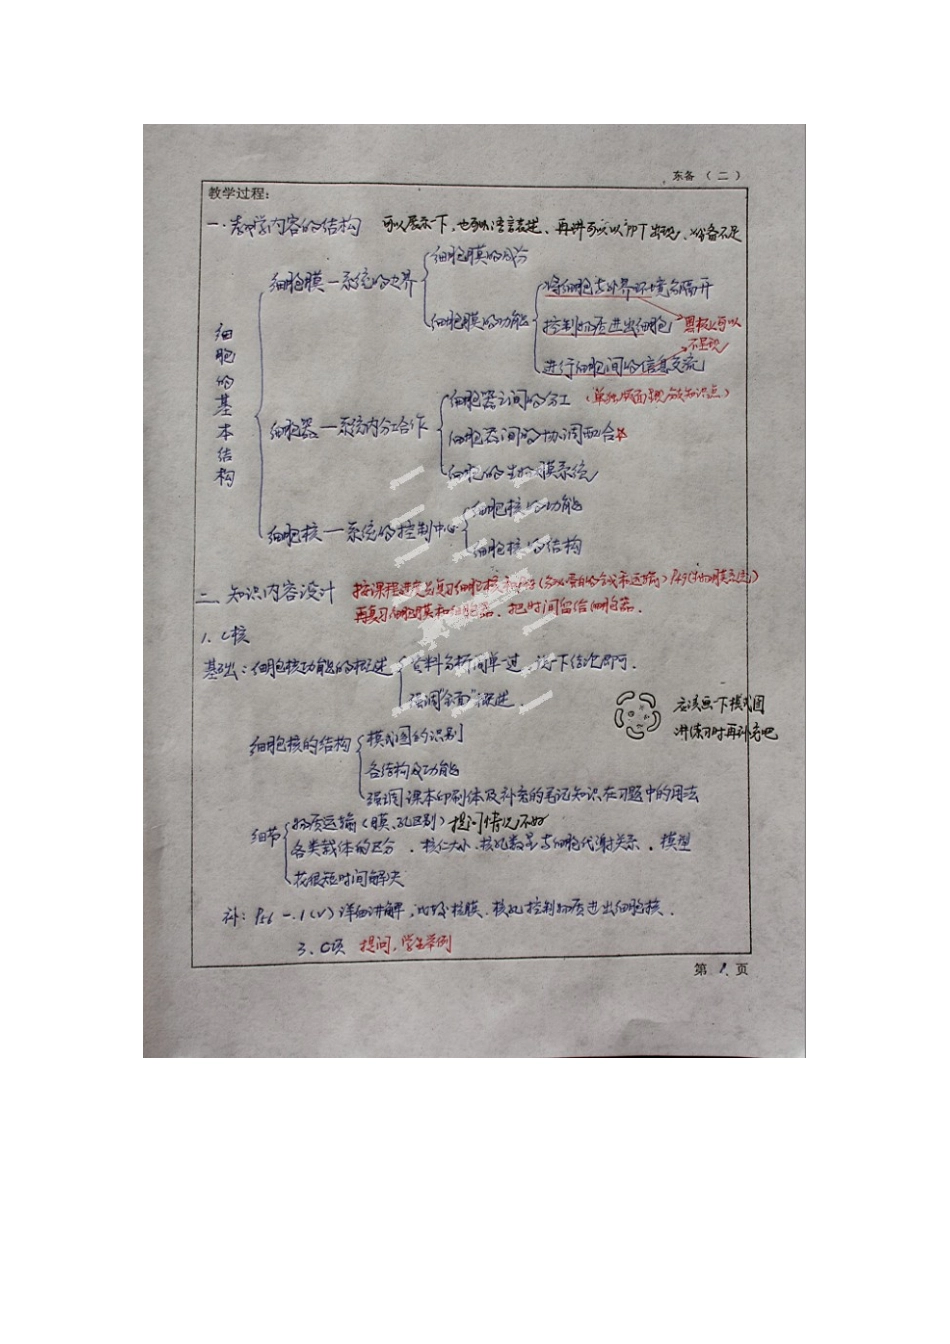 东备（二）
教学过程：
一、教学内容的结构 可以展示下，也可以语言表述、再讲可以以印下出现，准备不足
细胞的基本结构
细胞膜—系统的边界
细胞膜的成分
细胞膜的功能
将细胞与外界环境分隔开
控制物质进出细胞
进行细胞间的信息交流
黑板上可以
不呈现
细胞器—系统内分工合作
细胞器之间的分工
（单独 知识点）
细胞器间的协调配合
细胞的生物膜系统
细胞核—系统的控制中心
细胞核的功能
细胞核的结构
二、知识内容设计
按课程进度先复习细胞核
再复习细胞膜和细胞器．把时间留给细胞器．
1、C核
基础：细胞核功能的概述
资料分析简单过，说下结论即可．
强调“全面”课述．
应该画一下模式图
讲练习时再补充吧
细胞核的结构
模式图的识别
各结构及功能
强调课本印刷体及补充的笔记知识在习题中的用法
细节
物质运输（膜、孔区别）提问情况不好
各类载体的区分．核仁大小、核孔数量与细胞代谢关系．模型
花很短时间解决
补：P56 一.1(√)详细讲解，比较核膜、核孔控制物质进出细胞核．
3、C项 提问，学生举例
第 1 页